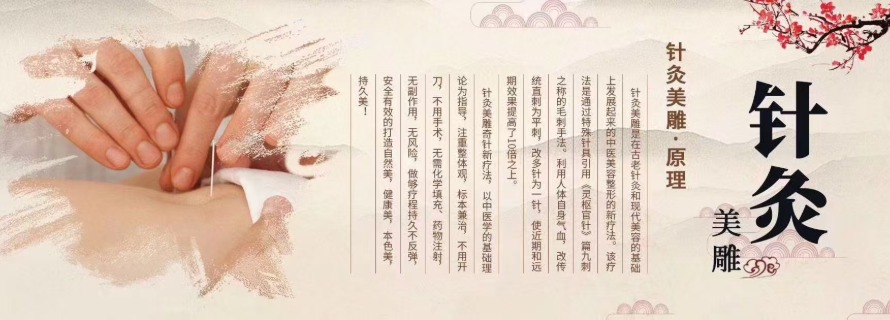 针灸
美雕
针灸美雕·原理
针灸美雕是在古老针灸和现代美容的基础
上发展起来的中医美容整形的新疗法。该疗
法是通过特殊针具引用《灵枢官针》篇九刺
之称的毛刺手法。利用人体自身气血，改传
统直刺为平刺，改多针为一针，使近期和远
期效果提高了10倍之上。
针灸美雕奇针新疗法，以中医学的基础理
论为指导，注重整体观，标本兼治，不用开
刀，不用手术，无需化学填充、药物注射，
无副作用，无风险，做够疗程持久不反弹，
安全有效的打造自然美，健康美，本色美，
持久美！